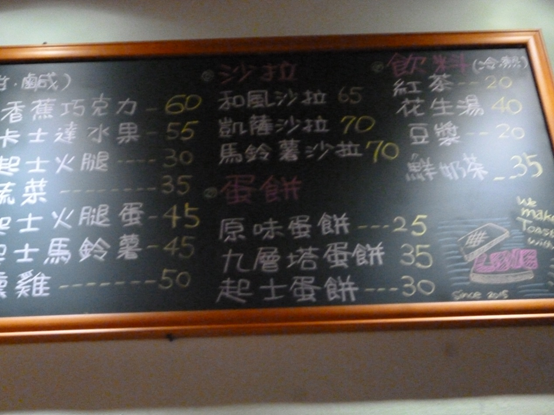 甜.鹹)
香蕉巧克力--60
卡士達水果--55
起士火腿----30
蔬菜--------35
起士火腿蛋-45
起士馬鈴薯-45
燻雞--------50
沙拉
和風沙拉 65
凱薩沙拉 70
馬鈴薯沙拉70
蛋餅
原味蛋餅---25
九層塔蛋餅 35
起士蛋餅---30
飲料(冷.熱)
紅茶--20
花生湯 40
豆漿--20
鮮奶茶--35
We
make
Toast
with
LOVE
Since 2015